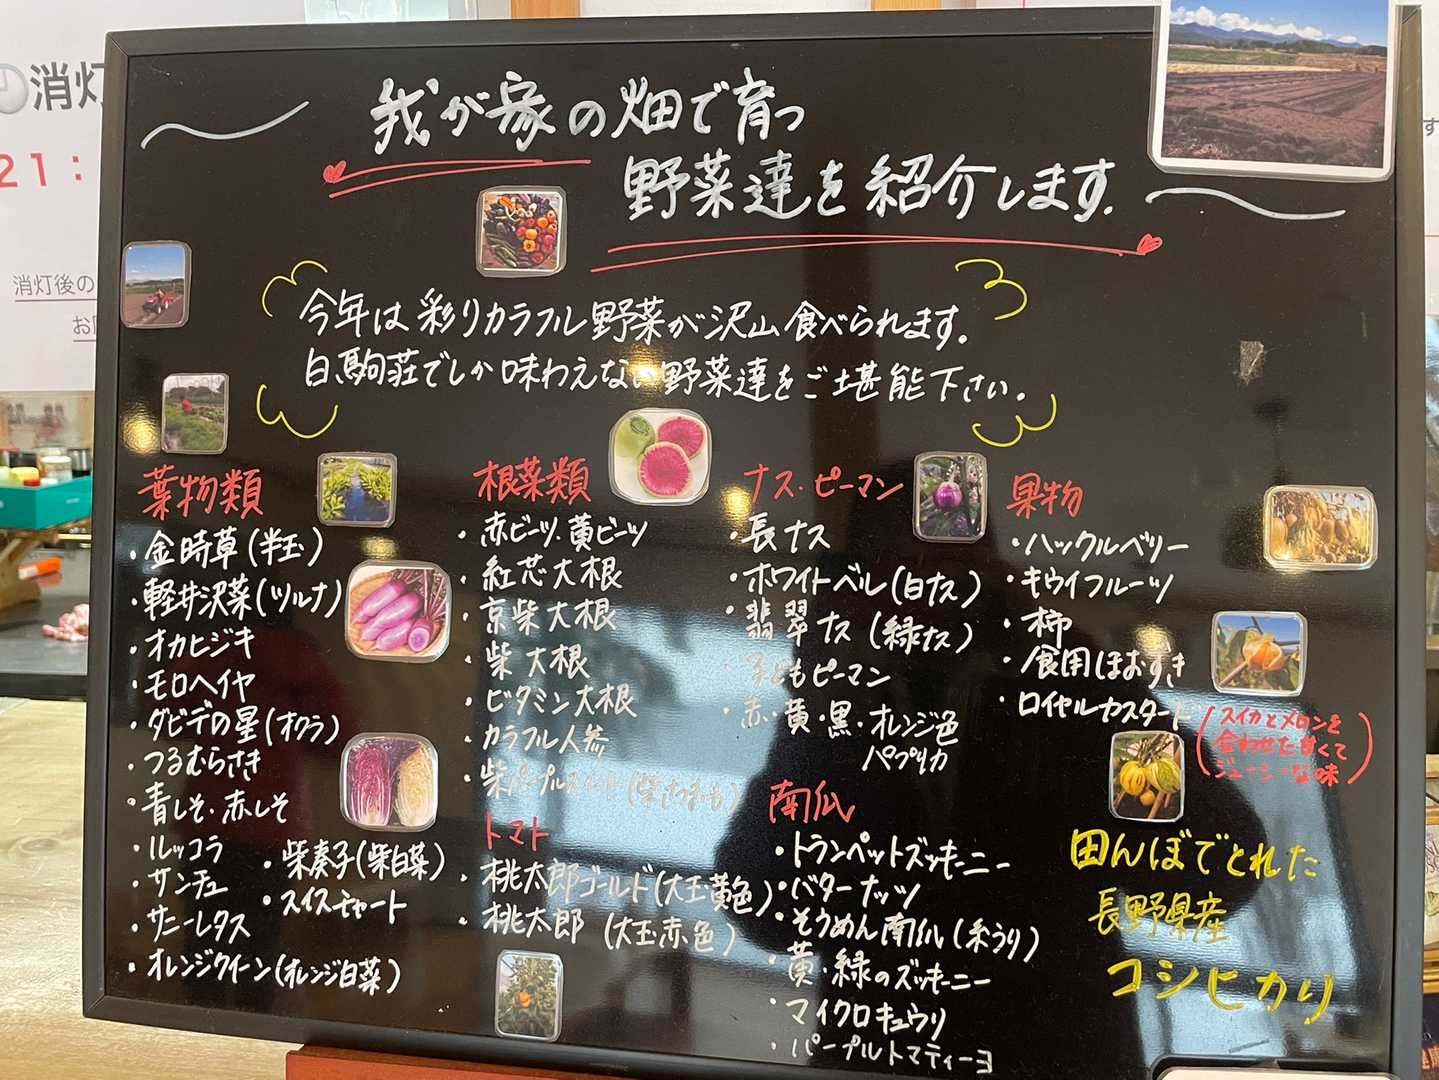 消灯
21:
消灯後の
我が家の畑で育つ
野菜達を紹介します。
今年は彩りカラフル野菜が沢山食べられます。
白駒荘でしか味わえない野菜達をご堪能下さい。
葉物類
・金時草(半玉)
・軽井沢菜(ツルナ)
・オカヒジキ
・モロヘイヤ
・ダビデの星(オクラ)
・つるむらさき
・青しそ・赤しそ
・ルッコラ
・サンチュ
・サニーレタス
・オレンジクイーン(オレンジ白菜)
・紫奏子(紫白菜)
・スイスチャート
根菜類
・赤ビーツ・黄ビーツ
・紅芯大根
・京紫大根
・紫大根
・ビタミン大根
・カラフル人参
・紫パープルスイート(紫さつまいも)
トマト
・桃太郎ゴールド(大玉黄色)
・桃太郎(大玉赤色)
ナス・ピーマン
・長ナス
・ホワイトベル(白ナス)
・翡翠ナス(緑ナス)
・子どもピーマン
・赤・黄・黒・オレンジ色
パプリカ
南瓜
・トランペットズッキーニー
・バターナッツ
・そうめん南瓜(糸うり)
・黄・緑のズッキーニー
・マイクロキュウリ
・パープルトマティーヨ
果物
・ハックルベリー
・キウイフルーツ
・柿
・食用ほおずき
・ロイヤルカスタード
(スイカとメロンを
合わせた甘くて
ジューシーな味)
田んぼでとれた
長野県産
コシヒカリ